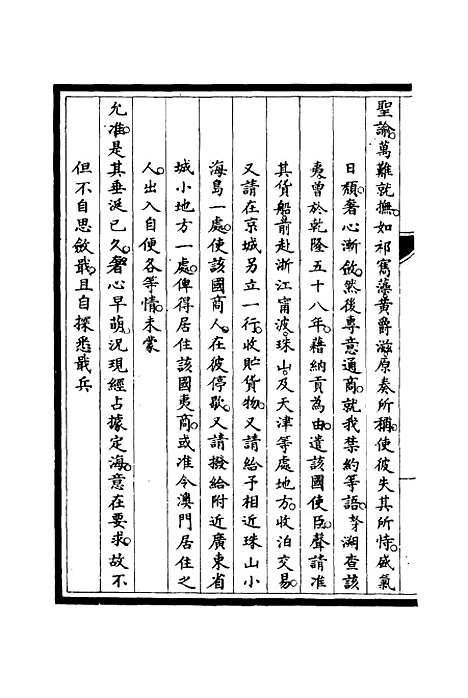 聖諭。萬難就撫。如祁寯藻黃爵滋原奏所稱。使彼失其所恃。盛氣
日頹。奢心漸斂。然後專意通商。就我禁約等語。溯查該
夷曾於乾隆五十八年。藉納貢為由。遣該國使臣。聲請准
其貨船前赴浙江甯波。珠山。及天津等處地方。收泊交易。
又請在京城另立一行。收貯貨物。又請給予相近珠山小
海島一處。使該國商人。在彼停歇。又請撥給附近廣東省
城小地方一處。俾得居住該國夷商。或准令澳門居住之
人。出入自便各等情。未蒙
允准。是其垂涎已久。奢心早萌。況現經占據定海。意在要求。故不
但不自思斂戢。且自探悉戢兵